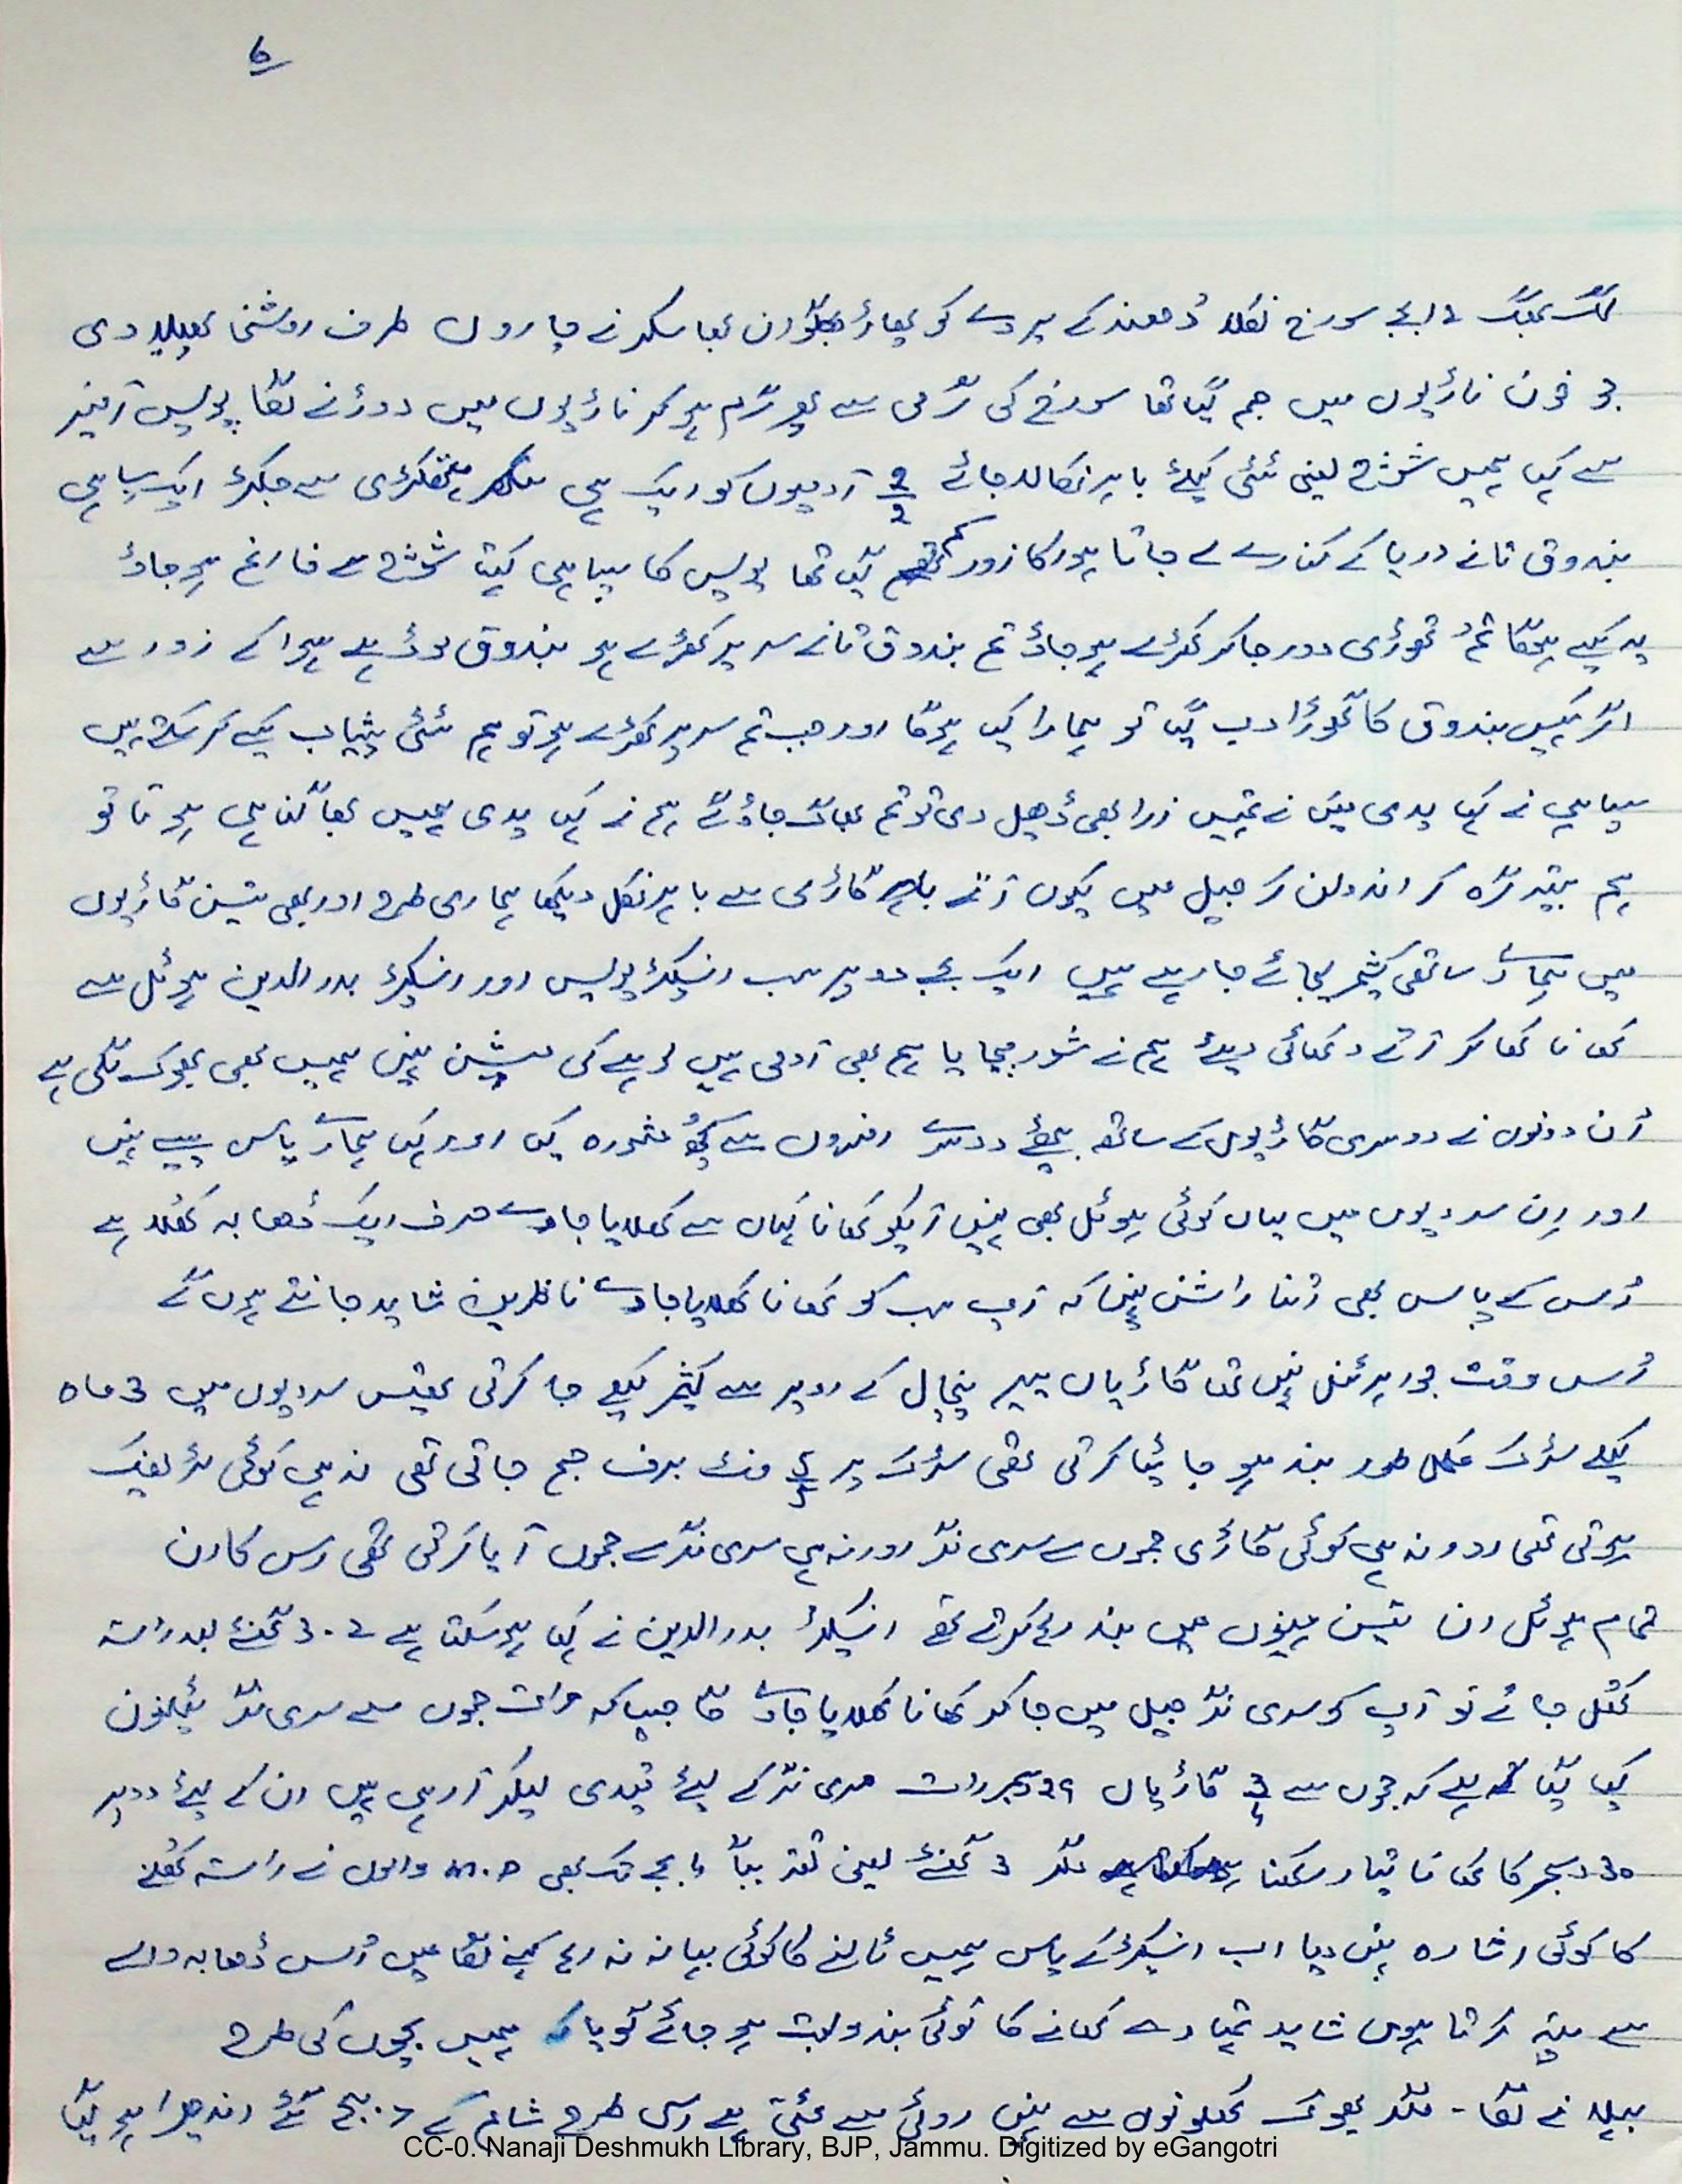 6
لگ بھگ 12 بجے سورج نکلا دُھندکے پردے کو پھاڑ بھگوان بھاسکر نے چاروں طرف روشنی پھیلا دی
جو خون ناڑیوں میں جم گیا تھا سورج کی گرمی سے پھر گرم ہوکر ناڑیوں میں دوڑنے لگا پولیس آفیسر
سے کہا ہمیں شوچ لینی ٹٹی کیلئے باہر نکالا جائے 2 2 آدمیوں کو ایک ہی ہتھکڑی سے جکڑ ایک سپاہی
بندوق تانے دریا کے کنارے لے جاتا ہوا کا زور کم ہو گیا تھا پولیس کا سپاہی کہتا شوچ سے فارغ ہو جاؤ
یہ کیسے ہوگا تم تھوڑی دور جا کر کھڑے ہو جاؤ تم بندوق تانے سر پر کھڑے ہو بندوق لوڈ ہے ہوا کے زور سے
اگر کہیں بندوق کا گھوڑا دب گیا تو ہمارا کیا ہوگا اور جب تم سر پر کھڑے ہو تو ہم ٹٹی پیشاب کیسے کر سکتے ہیں
سپاہی نے کہا یدی میں نے تمہیں زرا بھی ڈھیل دی تو تم بھاگ جاؤ گے ہم نے کہا یدی ہمیں بھاگنا ہی ہوتا تو
ہم ستیہ گرہ کر اندولن کر جیل میں کیوں آتے گاڑی سے باہر نکل دیکھا ہماری طرح اور بھی تین گاڑیوں
میں ہمارے ساتھی کشمیر لیجائے جا رہے ہیں ایک بجے دوپہر سب انسپکٹر پولیس اور انسپکٹر بدرالدین ہوٹل سے
کھانا کھا کر آتے دکھائی دیئے ہم نے شور مچایا ہم بھی آدمی ہیں لوہے کی مشین نہیں ہمیں بھی بھوک لگی ہے
اُن دونوں نے دوسری گاڑیوں کے ساتھ بیٹھے دوسرے افسروں سے کچھ مشورہ کیا اور کہا ہمارے پاس پیسے نہیں
اور اِن سردیوں میں یہاں کوئی ہوٹل بھی نہیں آپکو کھانا کہاں سے کھلایا جاوے صرف ایک ڈھابہ کھلا ہے
اُس کے پاس بھی اُتنا راشن نہیں کہ آپ سب کو کھانا کھلایا جاوے ناظرین شاید جانتے ہوں گے
اُس وقت جواہر ٹنل نہیں تھا گاڑیاں پیر پنچال کے اوپر سے کشمیر کیلئے جا کرتی تھیں سردیوں میں 3 ماہ
کیلئے سڑک مکمل طور بند ہو جائیا کرتی تھی سڑک پر 5 فٹ برف جم جاتی تھی نہ ہی کوئی ٹریفک
ہوتی تھی اور نہ ہی کوئی گاڑی جموں سے سری نگر اور نہ ہی سری نگر سے جموں آیا کرتی تھی اس کارن
تمام ہوٹل ان تین مہینوں میں بند رہا کرتے تھے انسپکٹر بدرالدین نے کہا ہو سکتا ہے 2.3 گھنٹے بعد راستہ
کھل جائے تو آپ کو سری نگر جیل میں جا کر کھانا کھلایا جاوے گا جیسا کہ رات جموں سے سری نگر ٹیلیفون
کیا گیا ہے کہ جموں سے 3 4 گاڑیاں 29 دسمبر رات سری نگر کے لیئے قیدی لیکر آ رہی ہیں ان کے لیئے دوپہر
30 دسمبر کا کھانا تیار رکھنا مگر 3 گھنٹے یعنی تقریباً 4 بجے تک بھی M.P والوں نے راستہ کھلنے
کا کوئی اشارہ نہیں دیا اب انسپکٹر کے پاس ہمیں ٹالنے کا کوئی بہانہ نہ رہا کہنے لگا میں اُس ڈھابہ والے
سے پتہ کرتا ہوں شاید تمہارے کھانے کا کوئی بندوبست ہو جائے گویا کہ ہمیں بچوں کی طرح
بہلانے لگا - مگر بھوک کھلونوں سے نہیں روٹی سے مٹتی ہے اسی طرح شام کے 7 بج گئے اندھیرا ہو گیا
CC-0. Nanaji Deshmukh Library, BJP, Jammu. Digitized by eGangotri